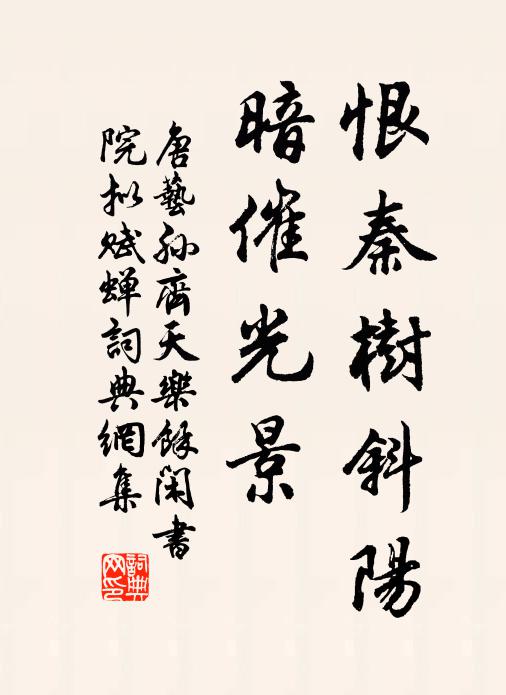 恨秦樹斜陽
暗催光景
唐藝孫齊天樂餘閑書
院拟赋蝉詞典網集
詞典網印